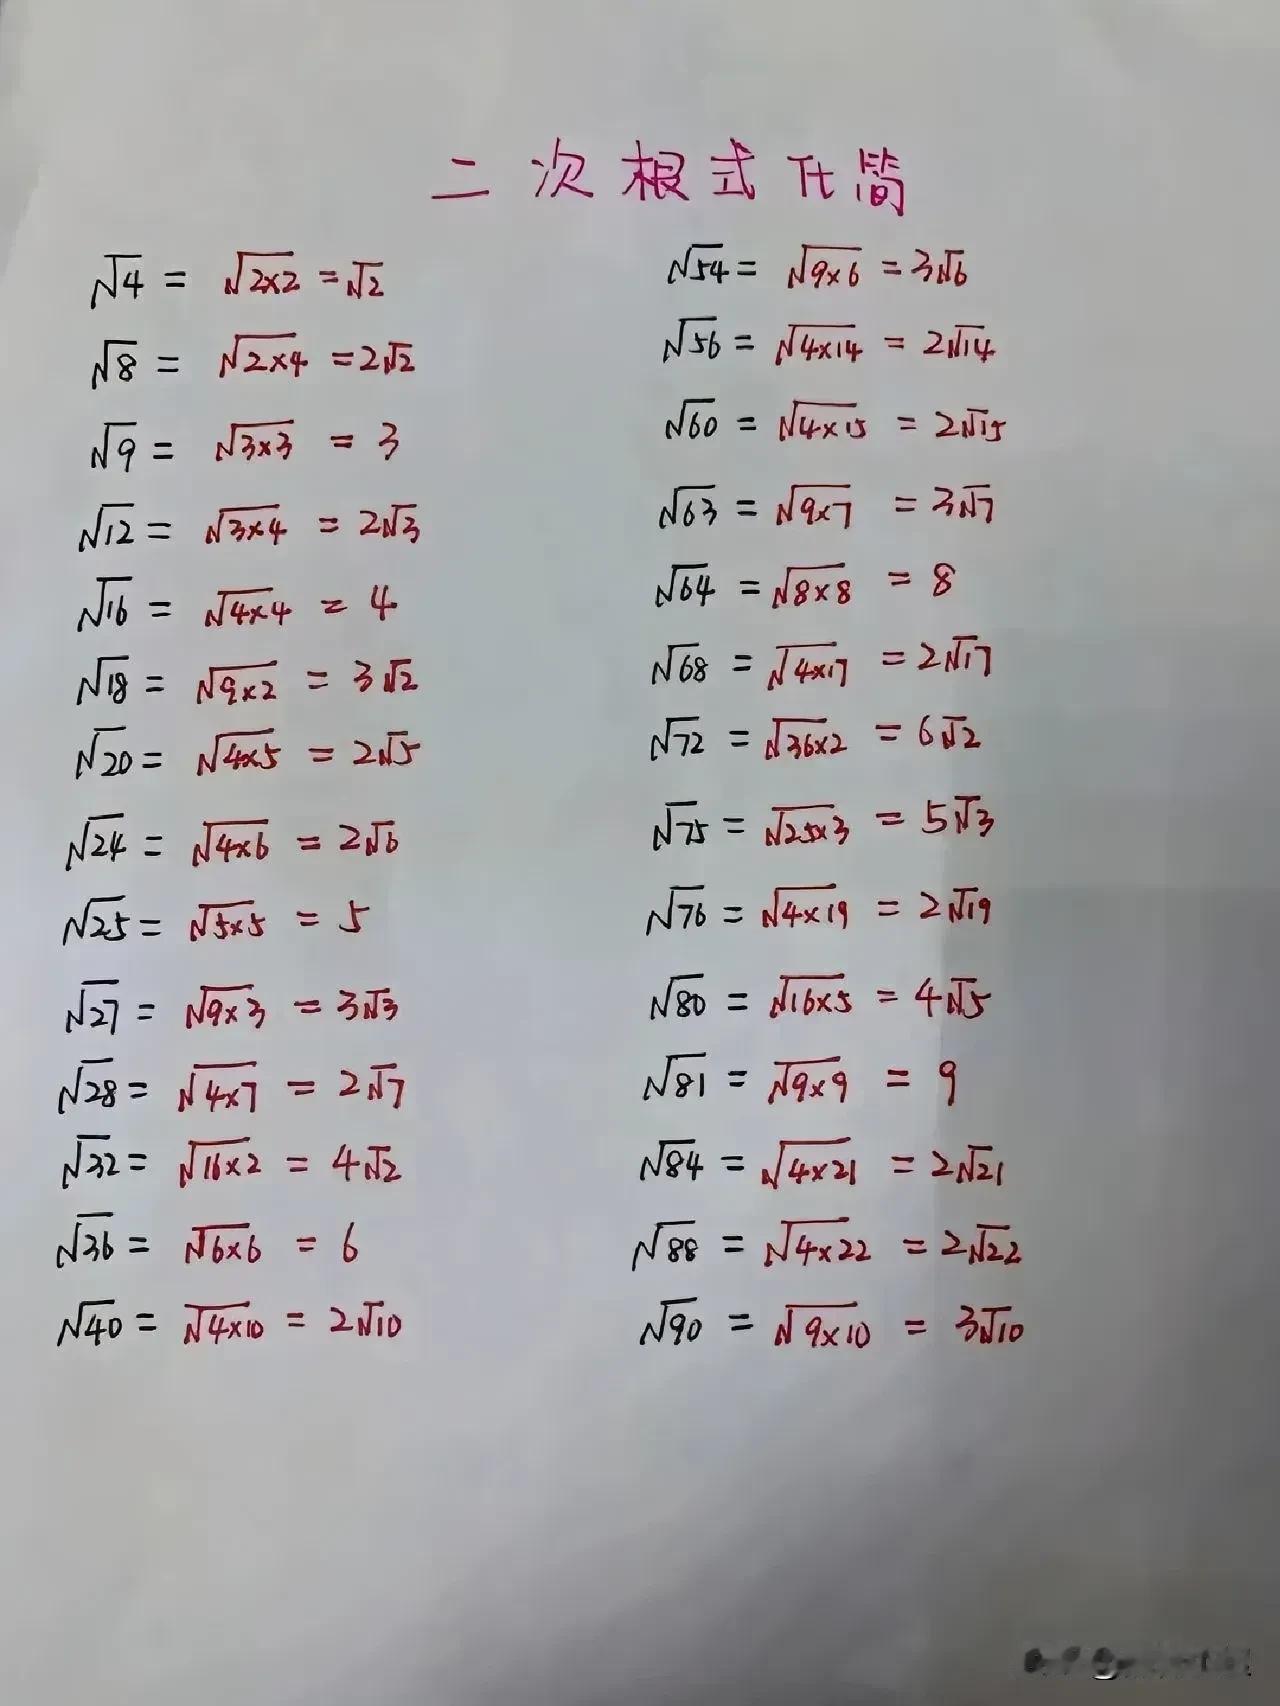 二次根式化简
√4 = √2×2 = √2
√8 = √2×4 = 2√2
√9 = √3×3 = 3
√12 = √3×4 = 2√3
√16 = √4×4 = 4
√18 = √9×2 = 3√2
√20 = √4×5 = 2√5
√24 = √4×6 = 2√6
√25 = √5×5 = 5
√27 = √9×3 = 3√3
√28 = √4×7 = 2√7
√32 = √16×2 = 4√2
√36 = √6×6 = 6
√40 = √4×10 = 2√10
√54 = √9×6 = 3√6
√56 = √4×14 = 2√14
√60 = √4×15 = 2√15
√63 = √9×7 = 3√7
√64 = √8×8 = 8
√68 = √4×17 = 2√17
√72 = √36×2 = 6√2
√75 = √25×3 = 5√3
√76 = √4×19 = 2√19
√80 = √16×5 = 4√5
√81 = √9×9 = 9
√84 = √4×21 = 2√21
√88 = √4×22 = 2√22
√90 = √9×10 = 3√10